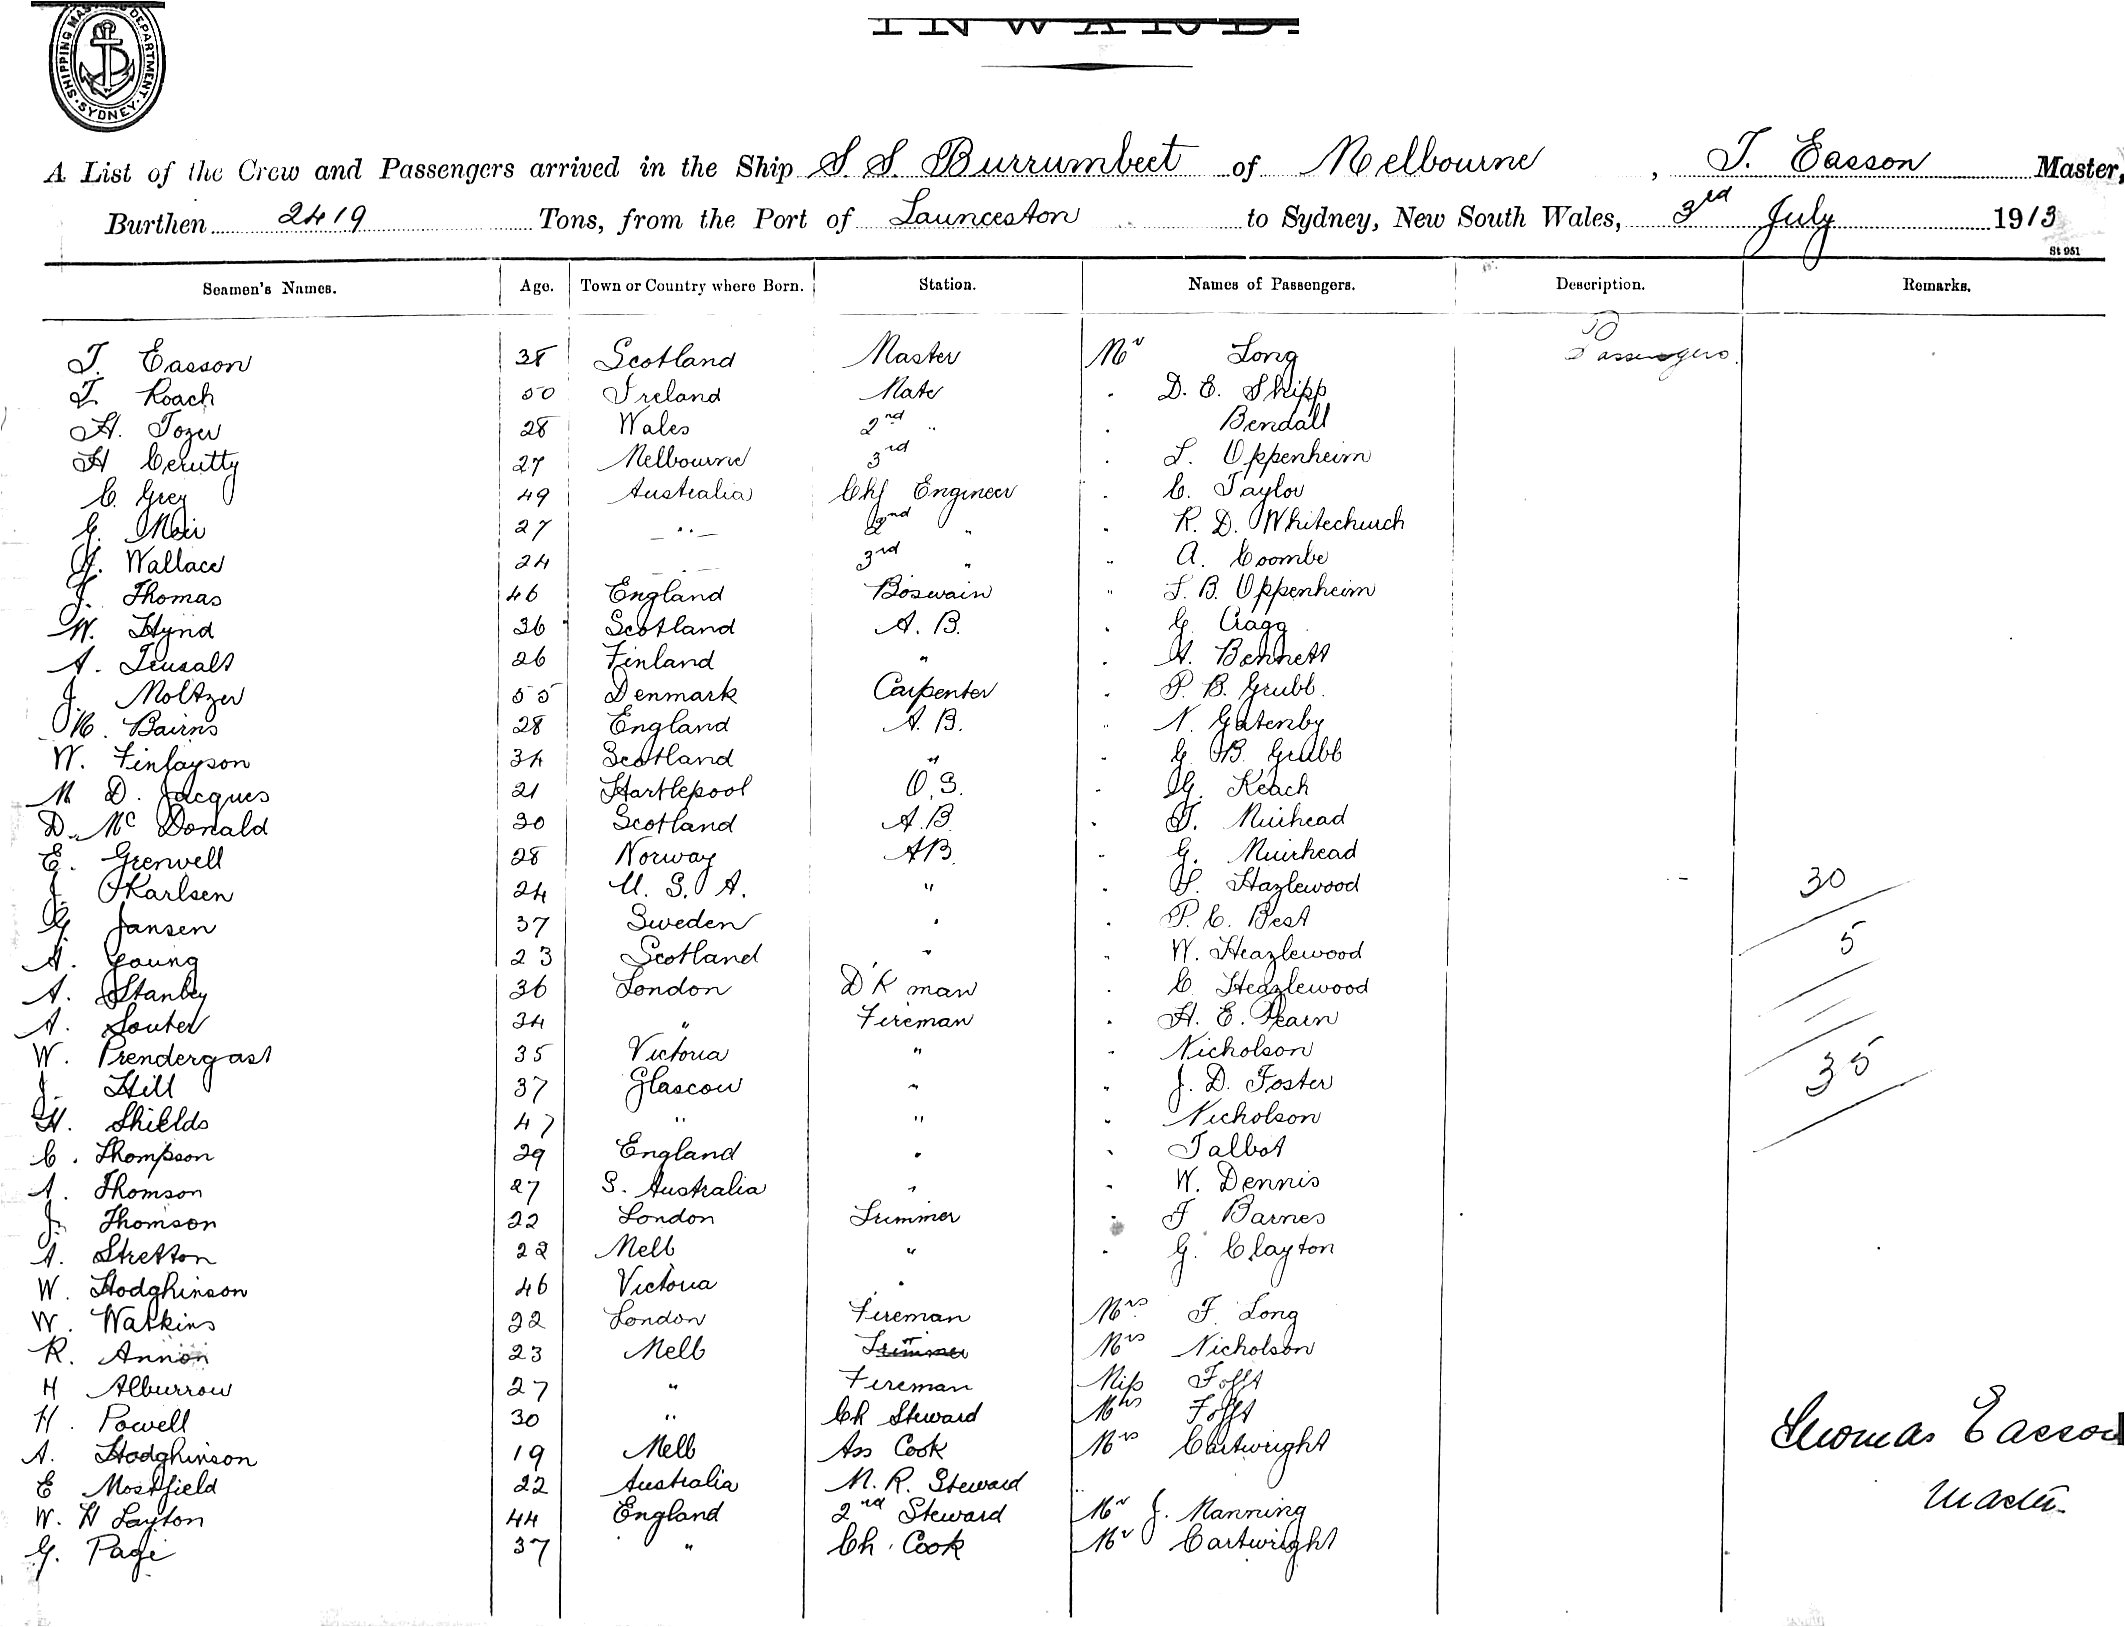 SHIPPING MASTERS DEPARTMENT · SYDNEY ·
INWARD.
A List of the Crew and Passengers arrived in the Ship S. S. Burrumbeet of Melbourne, T. Easson Master,
Burthen 2419 Tons, from the Port of Launceston to Sydney, New South Wales, 3rd July 1913
St 951
Seamen's Names. Age. Town or Country where Born. Station. Names of Passengers. Description. Remarks.
T. Easson 38 Scotland Master Mr Long Passengers
T. Roach 50 Ireland Mate . D. E. Shipp
H. Tozer 28 Wales 2nd " . Bendall
H Cerutty 27 Melbourne 3rd . L. Oppenheim
C. Grey 49 Australia Chf Engineer . C. Taylor
G. Moir 27 " 2nd " . R. D. Whitechurch
Wallace 24 3rd " " A. Coombe
J. Thomas 46 England Boswain " L. B. Oppenheim
W. Hynd 36 Scotland A. B. . G. Cragg
A. 26 Finland " . A. Bennett
J. Moltzer 55 Denmark Carpenter . P. B. Grubb.
M. Bairns 28 England A. B. " N. Gatenby
W. Finlayson 34 Scotland " . G. B. Grubb
M D. Jacques 21 Hartlepool O. S. . G. Keach
D. Mc Donald 30 Scotland A. B. . T. Muirhead
E. Grenvell 28 Norway AB. . G. Muirhead
J. Karlsen 24 U. S. A. " . S. Hazlewood 30
G. Jansen 37 Sweden " . P. C. Best
A. Young 23 Scotland " . W. Heazlewood 5
A. Stanley 36 London D K man . C. Heazlewood
A. Souter 34 " Fireman . H. E. Pearn
W. Prendergast 35 Victoria " . Nicholson
J. Hill 37 Glascow " . J. D. Foster 35
H. Shields 47 " " . Nicholson
C. Thompson 29 England " . Talbot
A. Thomson 27 S. Australia " . W. Dennis
J. Thomson 22 London Trimmer . F Barnes
A. Stretton 22 Melb " . G. Clayton
W. Hodghinson 46 Victoria "
W. Watkins 22 London Fireman Mrs F. Long
R. Annon 23 Melb Trimmer Mrs Nicholson
H Alburrow 27 " Fireman Miss Fofft
H. Powell 30 " Ch Steward Mrs Fofft
A. Hodghinson 19 Melb Ass Cook Mrs Cartwright Thomas Easson
E Mostfield 22 Australia M. R. Steward Master.
W. H Layton 44 England 2nd Steward Mr J. Manning
G. Page 37 " Ch. Cook Mr Cartwright